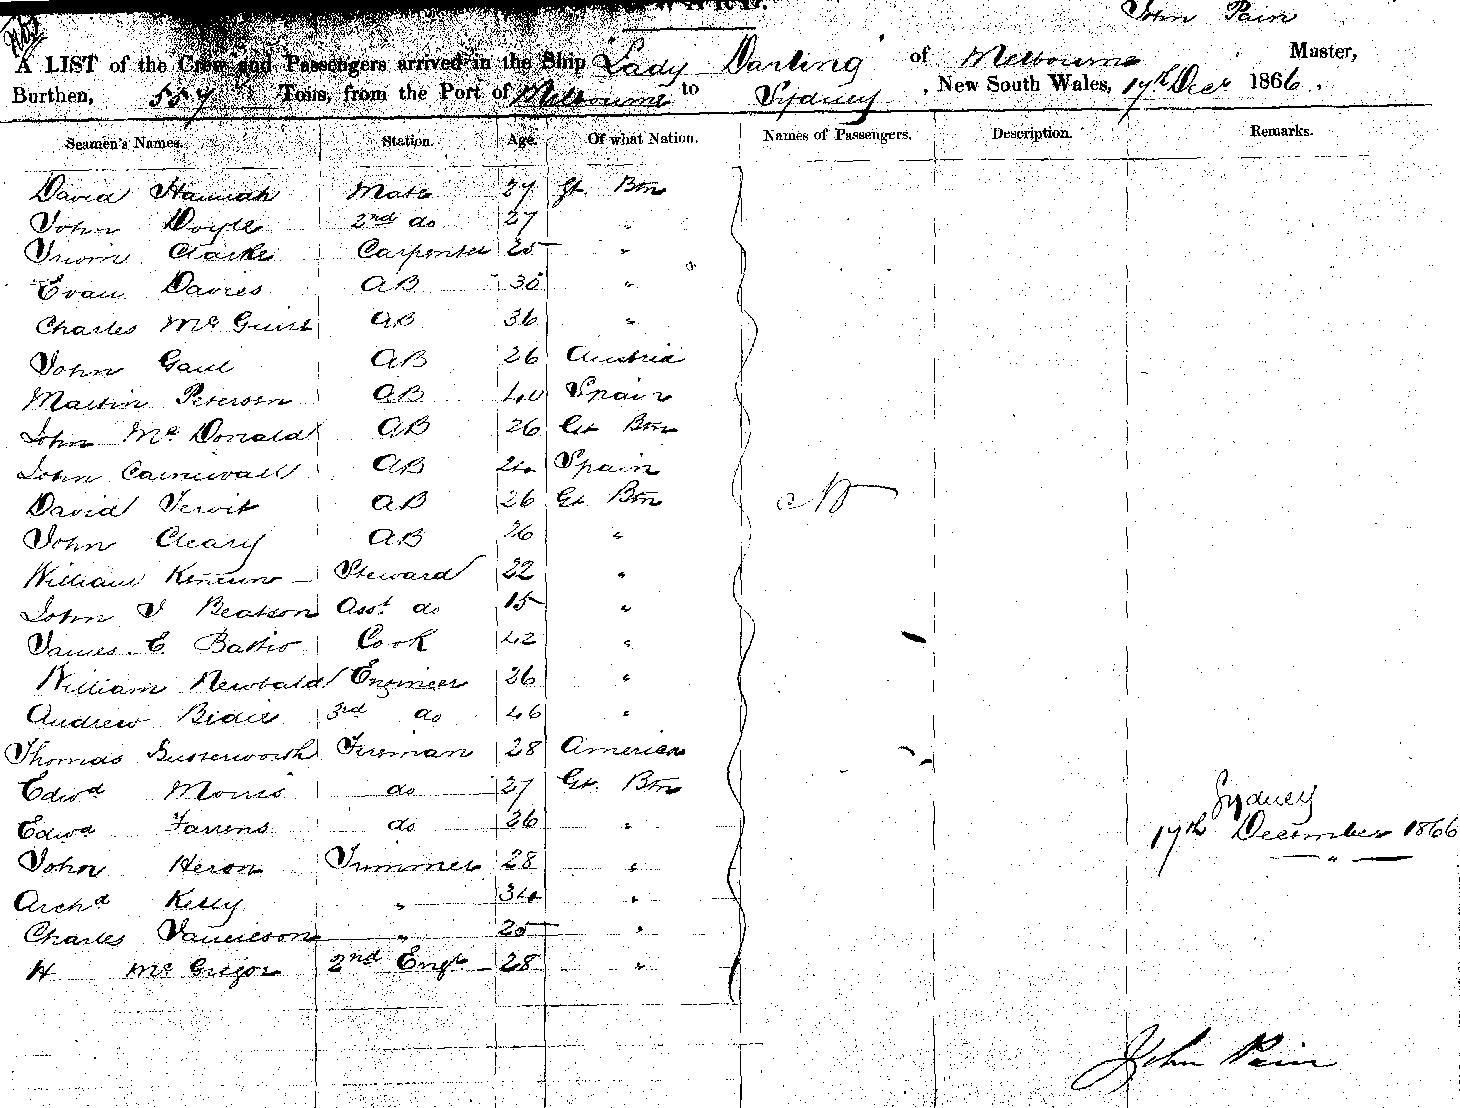 John Pain
A LIST of the Crew and Passengers arrived in the Ship "Lady Darling" of Melbourne Master,
Burthen, 557 Tons, from the Port of Melbourne to Sydney, New South Wales, 17th Decr 1866.
Seamen's Names. Station. Age. Of what Nation. Names of Passengers. Description. Remarks.
David Hannah Mate 27 Gt Btn
John Doyle 2nd do 27 "
Clarke Carpenter 25 "
Evan Davies AB 30 "
Charles McGuire AB 36 "
John Gaul AB 26 Austria
Martin Peterson AB 40 Spain
John McDonald AB 26 Gt Btn
John AB 24 Spain
David AB 26 Gt Btn
John Cleary AB 26 "
William Steward 22 "
John J Beatson Asst do 15 "
James E. Cook 42 "
William Newbald Engineer 26 "
Andrew Bidie 3rd do 46 "
Thomas Butterworth Fireman 28 America
Edwd Morris do 27 Gt. Btn
Edwd Farrens do 36 "
Sydney
17th December 1866
John Heron Trimmer 28 "
Archd Kelly " 34 "
Charles Jamieson " 25 "
H McGregor 2nd Engr 28 "
John Pain